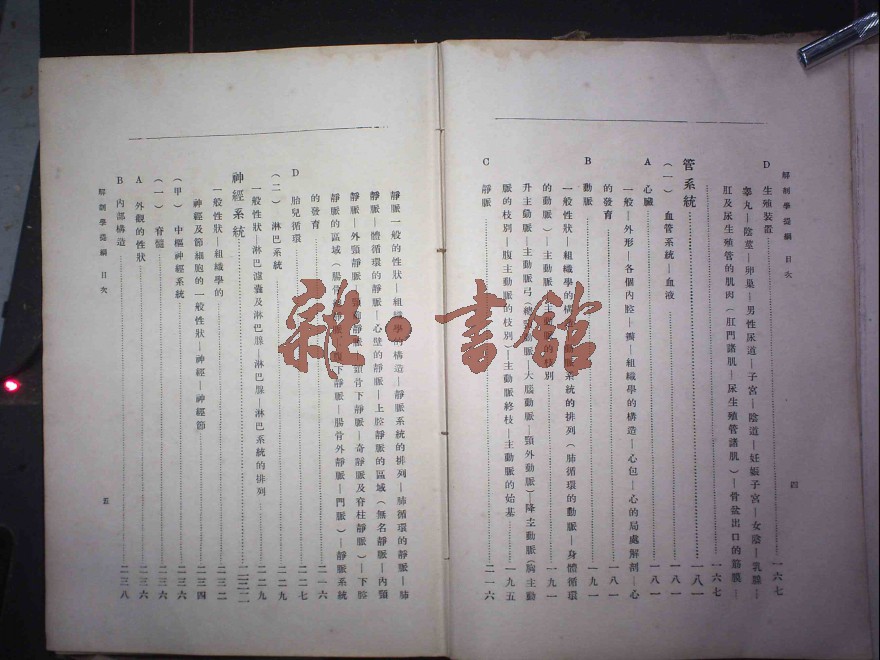 解剖學提綱 目次
四
D 生殖裝置……一六七
睾丸—陰莖—卵巢—男性尿道—子宮—陰道—妊娠子宮—女陰—乳腺—
肛及尿生殖管的肌肉(肛門諸肌—尿生殖管諸肌)—骨盆出口的筋膜—
……一六七
管系統……一八一
(一) 血管系統—血液……一八一
A 心臟……一八一
一般—外形—各個內腔—瓣—組織學的構造—心包—心的局處解剖—心
的發育……一八一
B 動脈……一九一
一般性狀—組織學的構造—動脈系統的排列(肺循環的動脈—身體循環
的動脈)—主動脈 的枝別……一九一
升主動脈—主動脈弓(總 動脈—大腦動脈—頸外動脈)—降主動脈(胸主動
脈的枝別—腹主動脈的枝別)—主動脈終枝—主動脈的始基……一九五
C 靜脈……二一六
靜脈一般的性狀—組織學的構造—靜脈系統的排列—肺循環的靜脈—肺
靜脈—體循環的靜脈—心壁的靜脈—上腔靜脈的區域(無名靜脈—內頸
靜脈—外頸靜脈 靜脈—鎖骨下靜脈—奇靜脈及脊柱靜脈)—下腔
靜脈的區域(腸骨 靜脈 下靜脈—腸骨外靜脈—門脈)—靜脈系統
的發育……二一六
D 胎兒循環……二二七
(二) 淋巴系統……二二九
一般性狀—淋巴濾囊及淋巴腺—淋巴腺—淋巴系統的排列……二二九
神經系統……二三二
一般性狀—組織學的……二三二
神經及節細胞的一般性狀—神經—神經節……二三四
(甲) 中樞神經系統……二三六
(一) 脊髓……二三六
A 外觀的性狀……二三六
B 內部構造……二三八
解剖學提綱 目次
五
雜·書館